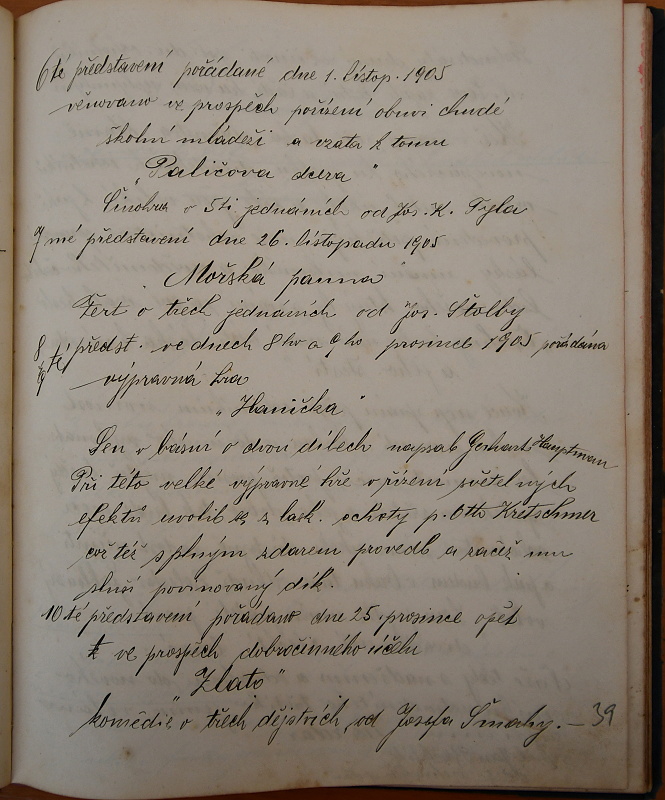 6té představení pořádané dne 1. listop. 1905
věnováno ve prospěch pořízení obuvi chudé
školní mládeži a vzata k tomu
„Paličova dcera"
Činohra v 5ti jednáních od Jos. K. Tyla
7mé představení dne 26. listopadu 1905
„Mořská panna"
Žert o třech jednáních od Jos. Štolby
8 9 té předst. ve dnech 8ho a 9ho prosince 1905 pořádána
výpravná hra
„Hanička"
Sen v básni o dvou dílech napsal Gerhart Hauptman
Při této velké výpravné hře v řízení světelných
efektů uvolil se z lask. ochoty p. Otto Kretschmer
což též s plným zdarem provedl a začež mu
sluší povinovaný dík.
10té představení pořádáno dne 25. prosince opět
ve prospěch dobročinného účelu
„Zlato"
komedie o třech dějstvích, od Josefa Šmahy. — 39